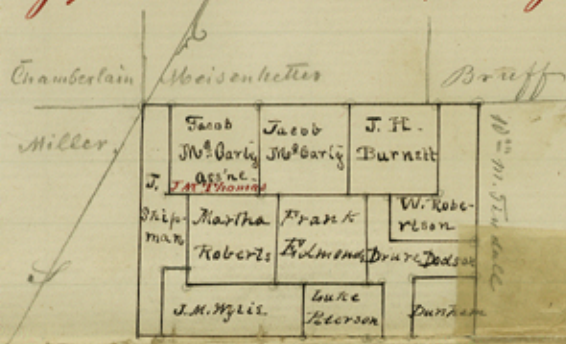 Chamberlain Meisenhelter Bruff
Miller
Jacob
McCarty
ass'ne
J. M. Thomas
Jacob
McCarty
J. H.
Burnett
Wm. M. Tindall
J.
Ship-
man
Martha
Roberts
Frank
Edmonds
W. Robe-
rtson
Drure Dodson
J. M. Wylie
Luke
Peterson
Dunham